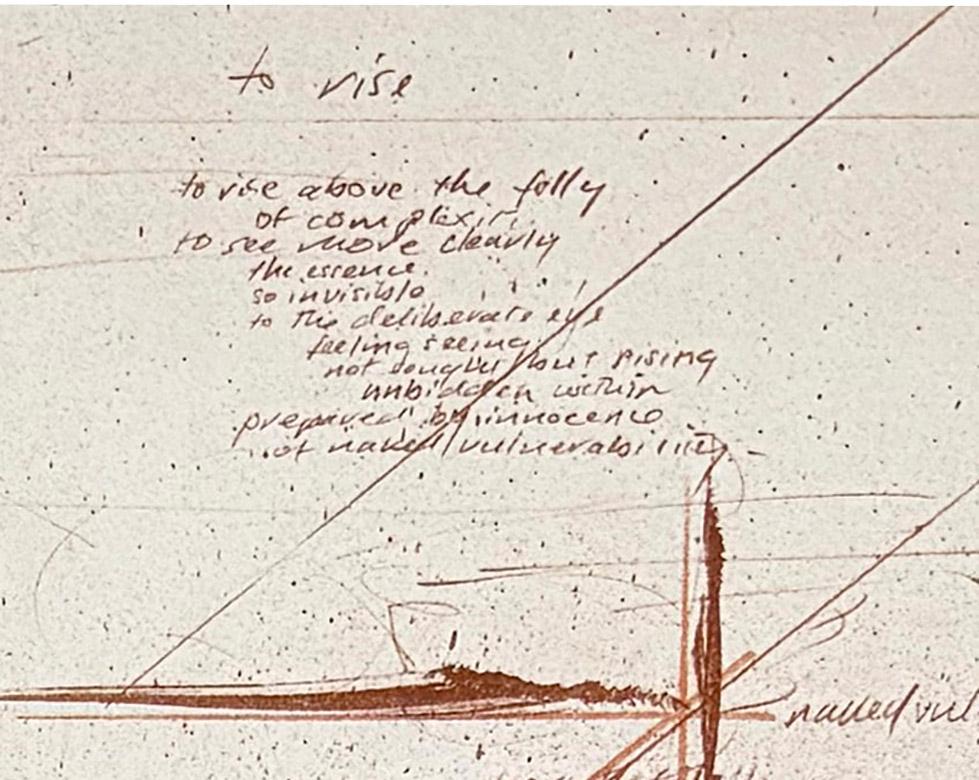 to rise
to rise above the folly
of complexity
to see more clearly
the essence
so invisible
to the deliberate eye
feeling seeing
not sought but rising
unbidden within
prepared by innocence
of naked vulnerability
naked vul